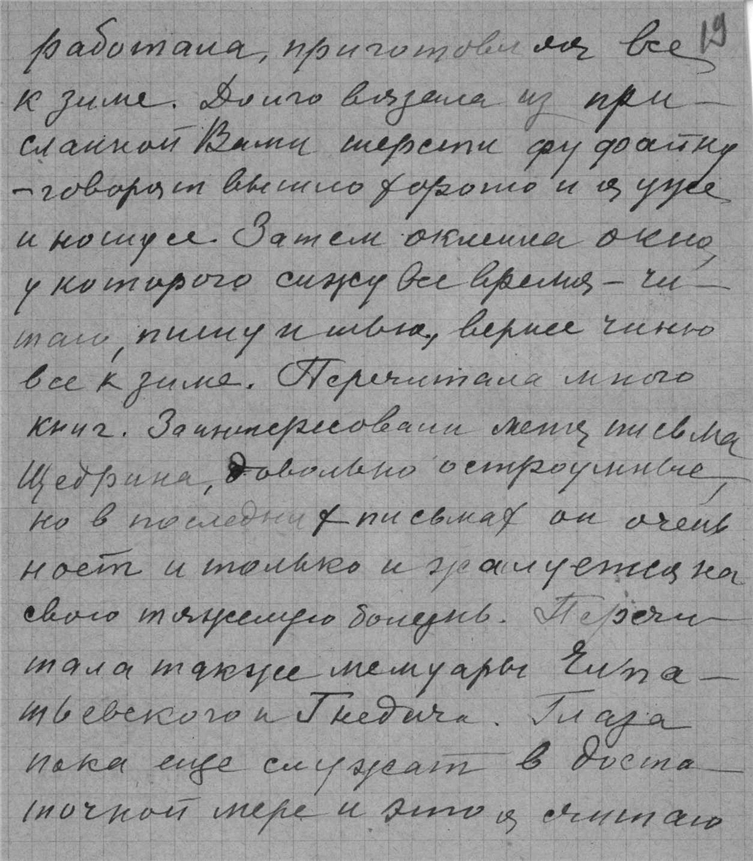 19
работала, приготовляя все
к зиме. Долго вязала из при-
сланной Вами шерсти фуфайку
- говорят вышло хорошо и я уже
и ношу ее. Затем оклеила окно,
у которого сижу все время - чи-
таю, пишу и шью, вернее чиню
все к зиме. Перечитала много
книг. Заинтересовали меня письма
Щедрина, довольно остроумные,
но в последних письмах он очень
ноет и только и жалуется на
свою тяжелую болезнь. Перечи-
тала также мемуары Елпа-
тьевского и Гнедича. Глаза
пока еще служат в доста-
точной мере и это я считаю